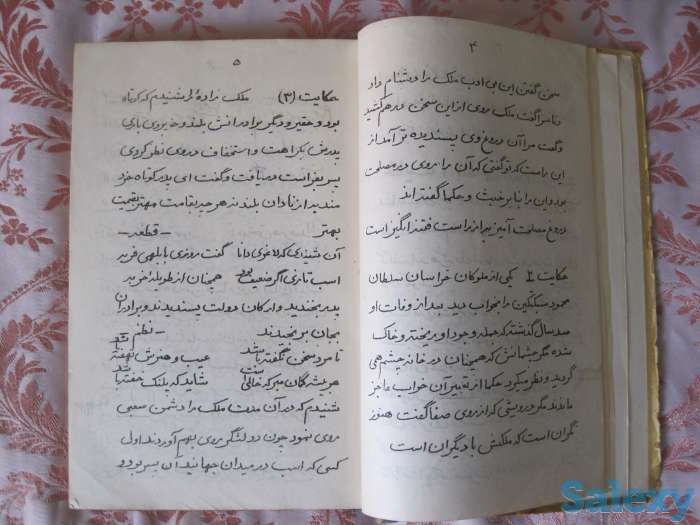 ۴
سخن گفتن این بی ادب ملک را دشنام داد
و نا سزا گفت ملک روی از این سخن درهم کشید
و گفت مرا آن دروغ وی پسندیده تر آمد از
این راست که تو گفتی که آن را روی در مصلحت
بود و این را بنا بر خبث و حکما گفته اند
دروغ مصلحت آمیز به از راست فتنه انگیز است
حکایت ۲ یکی از ملوکان خراسان سلطان
محمود سبکتکین را بخواب دید بعد از وفات او
صد سال گذشته که جمله وجود او ریخته و خاک
شده مگر چشمانش که همچنان در خانه چشم همی
گردید و نظر میکرد حکما از تعبیر آن خواب عاجز
ماندند مگر درویشی که از روی صفا گفت هنوز
نگران است که ملکش با دیگران است
۵
حکایت (۳) ملک زادهٔ را شنیدم که کوتاه
بود و حقیر و دیگر برادرانش بلند و خوبروی باری
پدرش بکراهت و استخفاف در وی نظر کردی
پسر بفراست دریافت و گفت ای پدر کوتاه خرد
مند به از نادان بلند نه هر چه بقامت مهتر بقیمت
بهتر — قطعه —
آن شنیدی که لاغری دانا گفت روزی بابلهی فربه
اسب تازی اگر ضعیف بود همچنان از طویله خر به
پدر بخندید و ارکان دولت پسندیدند و برادران
بجان برنجیدند — نظم —
تا مرد سخن نگفته باشد عیب و هنرش نهفته باشد
هر بیشه گمان مبر که خالی است شاید که پلنگ خفته باشد
شنیدم که در آن مدت ملک را دشمن صعبی
روی نمود چون دو لشگر روی بهم آوردند اول
کسی که اسب در میدان جهانید آن پسر بود و
Salexy